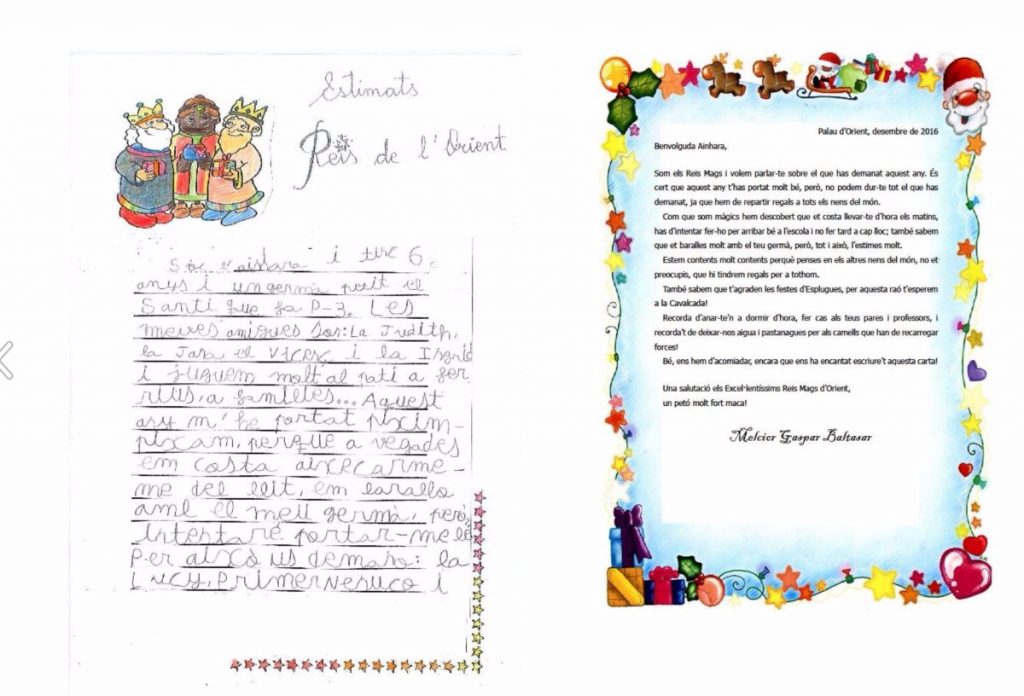 Estimats
Reis de l'Orient
Sóc l'ainhara i tinc 6
anys i un germà petit el
Santi que fa P-3. Les
meves amigues son: La Judith,
la Jara el Vicenç i la Ingrid
i juguem molt al pati a fer
rutlles, a families... Aquest
any m'he portat pixim-
pixam, perque a vegades
em costa aixecarme-
me del llit, em barallo
amb el meu germà, però,
intentaré portar-me bé
Per aixcò us demano: la
Lucy, Primer Nenuco i
Palau d'Orient, desembre de 2016
Benvolguda Ainhara,
Som els Reis Mags i volem parlar-te sobre el que has demanat aquest any. És
cert que aquest any t'has portat molt bé, però, no podem dur-te tot el que has
demanat, ja que hem de repartir regals a tots els nens del món.
Com que som màgics hem descobert que et costa llevar-te d'hora els matins,
has d'intentar fer-ho per arribar bé a l'escola i no fer tard a cap lloc; també sabem
que et baralles molt amb el teu germà, però, tot i això, l'estimes molt.
Estem contents molt contents perquè penses en els altres nens del món, no et
preocupis, que hi tindrem regals per a tothom.
També sabem que t'agraden les festes d'Esplugues, per aquesta raó t'esperem
a la Cavalcada!
Recorda d'anar-te'n a dormir d'hora, fer cas als teus pares i professors, i
recorda't de deixar-nos aigua i pastanagues per als camells que han de recarregar
forces!
Bé, ens hem d'acomiadar, encara que ens ha encantat escriure't aquesta carta!
Una salutació els Excel·lentíssims Reis Mags d'Orient,
un petó molt fort maca!
Melcior Gaspar Baltasar